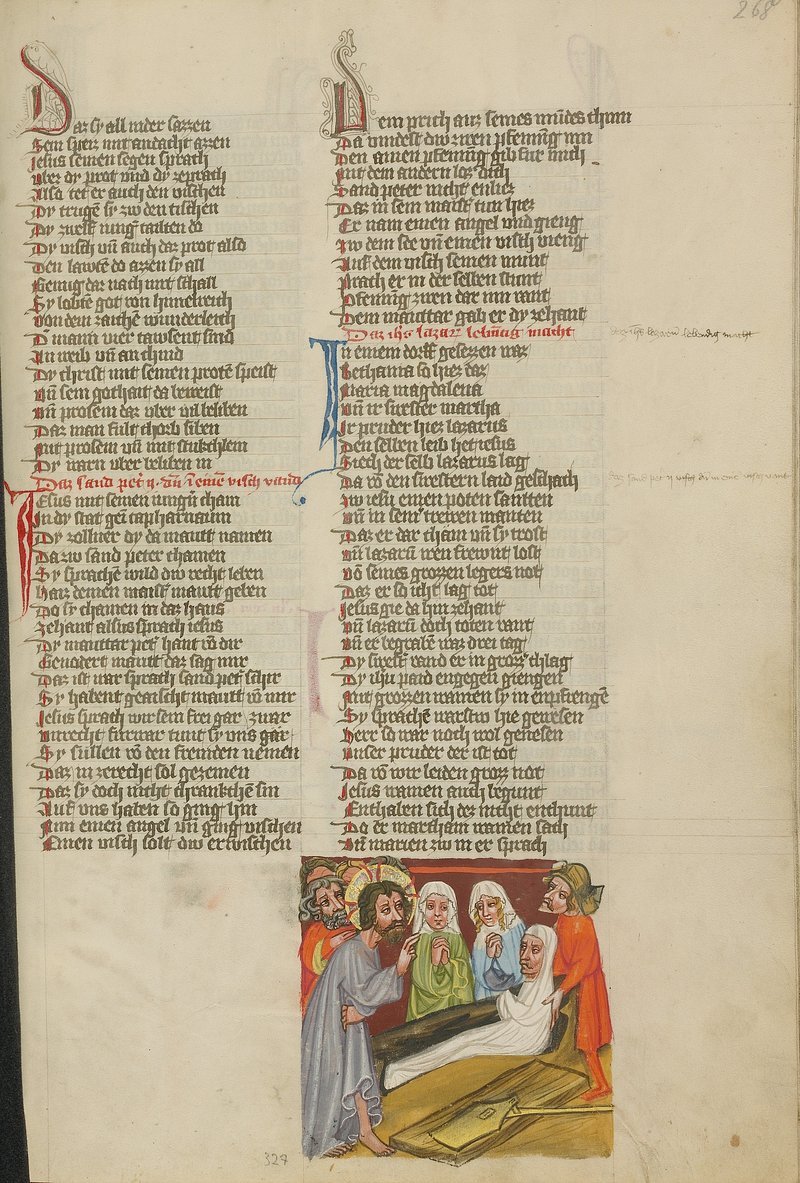 268
Daz sy all nider sazzen
Sein speiz mit andacht azzen
Jesus seinen segen sprach
Vber dy prot vnd dy zeprach
Also tet er auch den vischen
Dy trugē sy zw den tischen
Dy zwelf iung tailten do
Dy visch vn̄ auch daz prot also
Den lawtē do azzen sy all
Genug dar nach mit schall
Sy lobtē got von himelreich
Von dem zaichē wunderleich
D mann vier tawsent sind
An weib vn̄ an chind
Dy christ mit seinen protē speist
Vn̄ sein gothait da beweist
Vn̄ prosem daz vber vil beliben
Daz man fült chorb siben
Mit prosem vn̄ mit stukchlein
Dy warn vber beliben in
Daz sand pet ij dn̄ ī eine visch vand
Jesus mit seinen iungn̄ cham
In dy stat gen capharnaum
Dy zollner dy da mautt namen
Da zw sand peter chamen
Sy sprachē wild dw recht leben
Haiz deinen maist mautt geben
Do sy chamen in daz haus
Zehant alsus sprach iesus
Dy mauttar pet hant vō dir
Geuodert mautt daz sag mir
Daz ist war sprach sand pet schir
Sy habent geaischt mautt vō mir
Jesus sprach wir sein frei gar zwar
Vnrecht furwar tunt sy vns gar
Sy süllen vō den fremden nemen
Daz in zerecht sol gezemen
Daz sy doch nicht chrankchē sin
Auf vns haben so ging hin
Nim einen angel vn̄ ging vischen
Einen visch solt dw erwischen
Dem prich auz seines mundes chinn
Da vindest dw zwen pfenning inn
Den ainen pfenning gib für mich
Mit dem andern loz dich
Sand peter nicht enliez
Daz in sein maist tun hiez
Er nam einen angel vnd gieng
Zw dem see vn̄ einen visch vieng
Auz dem visch seinen munt
Prach er in der selben stunt
Pfenning zwen dar inn vant
Dem mauttar gab er dy zehant
Daz ihs lazarū lebentig macht
In einem dorff gesezzen waz
Bethania so hiez daz
Maria magdalena
Vn̄ ir swester martha
Ir pruder hiez lazarus
Den selben leib het iesus
Siech der selb lazarus lag
Da vō den swestern laid geschach
Zw iesu einen poten santten
Vn̄ in seinr trewen manten
Daz er dar cham vn̄ sy trost
Vn̄ lazarū iren frewnt lost
Vō seines grozzen legers not
Daz er so icht lag tot
Jesus gie da hin zehant
Vn̄ lazarū doch toten vant
Vn̄ er begrabē waz drei tag
Dy swest vand er in grozz chlag
Dy ihū paid engegen giengen
Mit grozzen wainen sy in enpfiengē
Sy sprachē warstw hie gewesen
Herr so war noch wol genesen
Vnser pruder der ist tot
Da vō wir leiden grozz not
Jesus wainen auch begunt
Enthalen sich des nicht enchunt
Do er martham wainen sach
Vn̄ marien zw in er sprach
327